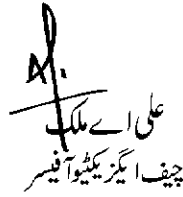 علی اے ملک
چیف ایگزیکٹیو آفیسر